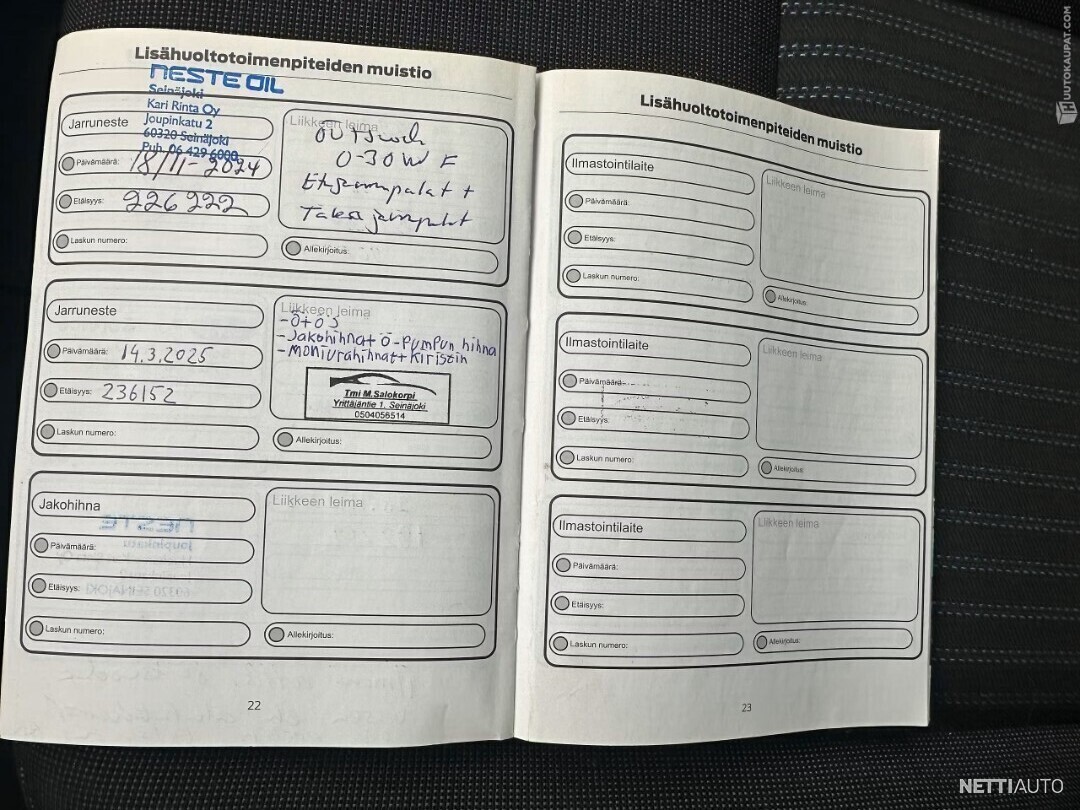 Lisähuoltotoimenpiteiden muistio
NESTE OIL
Seinäjoki
Kari Rinta Oy
Joupinkatu 2
60320 Seinäjoki
Puh. 06 429 6000
Jarruneste
Päivämäärä: 18/11-2024
Etäisyys: 226222
Laskun numero:
Liikkeen leima
0-30W F
Etujarrupalat +
Taka jarrupalat
Allekirjoitus:
Jarruneste
Päivämäärä: 14.3.2025
Etäisyys: 236152
Laskun numero:
Liikkeen leima
-Ö+OS
-Jakohihnat Ö-pumpun hihna
-Moniurahihnat+kiristin
Tmi M.Salokorpi
Yrittäjäntie 1. Seinäjoki
0504056514
Allekirjoitus:
Jakohihna
Päivämäärä:
Etäisyys:
Laskun numero:
Liikkeen leima
Allekirjoitus:
22
Lisähuoltotoimenpiteiden muistio
Ilmastointilaite
Päivämäärä:
Etäisyys:
Laskun numero:
Liikkeen leima
Allekirjoitus:
Ilmastointilaite
Päivämäärä:
Etäisyys:
Laskun numero:
Liikkeen leima
Allekirjoitus:
Ilmastointilaite
Päivämäärä:
Etäisyys:
Laskun numero:
Liikkeen leima
Allekirjoitus:
23
HUUTOKAUPAT.COM
NETTIAUTO